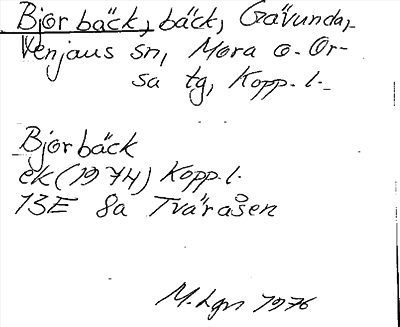 Bjorbäck, bäck, Gävunda,
Venjans sn, Mora o. Or-
sa tg, Kopp. l.
Bjorbäck
ek (1974) Kopp. l.
13E 8a Tväråsen
M. Lgn 1976